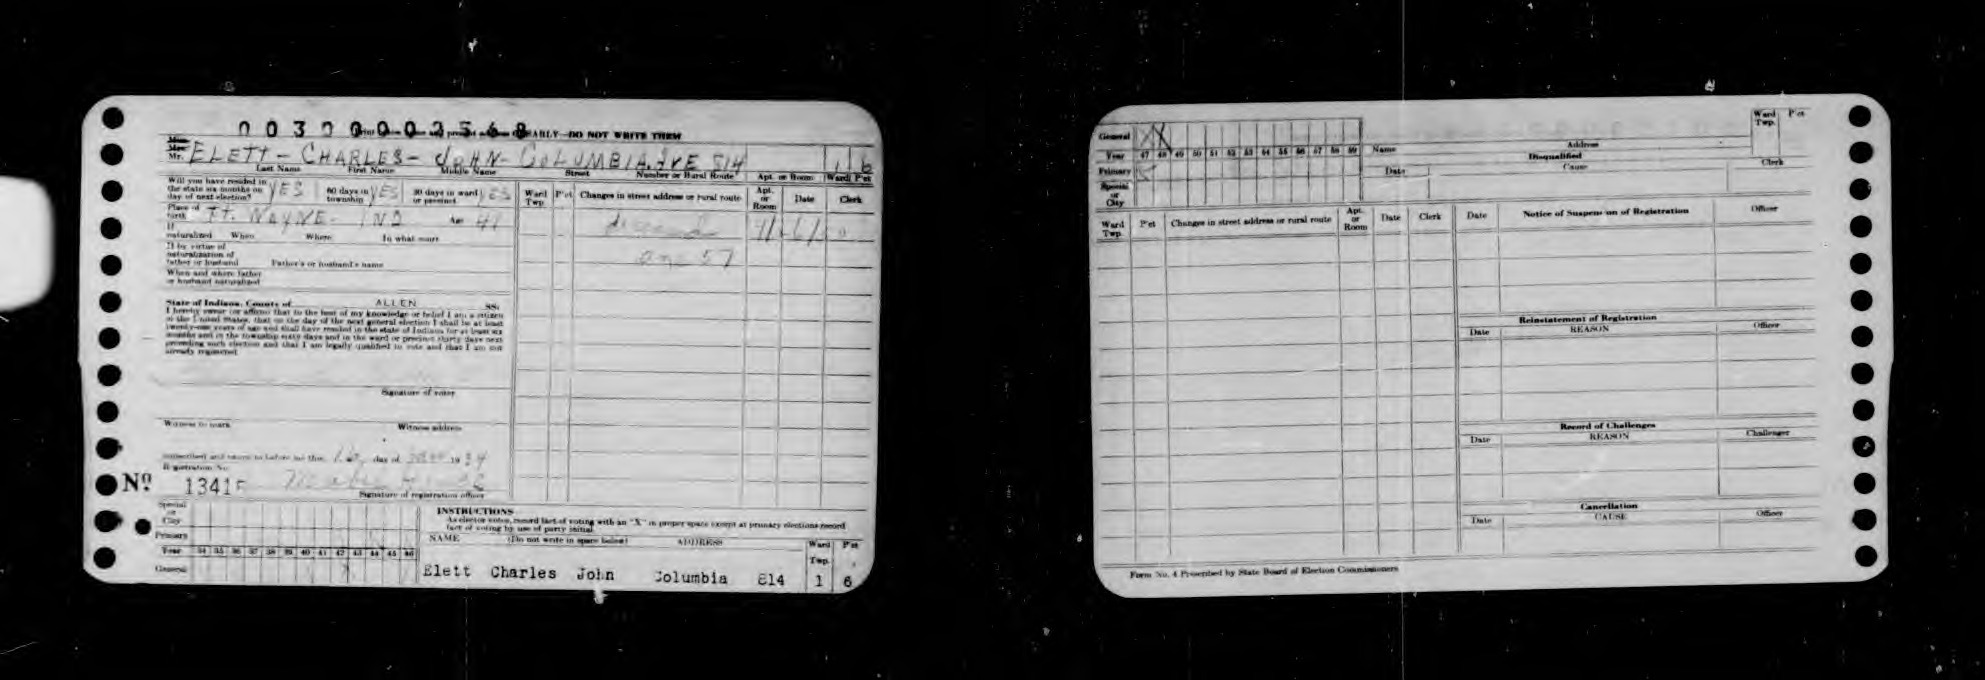 00300002568
EARLY—DO NOT WRITE THEM
Mr. ELETT - CHARLES - JOHN - COLUMBIA AVE 814 1 6
Last Name First Name Middle Name Street Number or Rural Route Apt. or Room Ward P'ct
Will you have resided in
the state six months on
day of next election? YES 60 days in
township YES 30 days in ward
or precinct YES
Place of
birth FT. WAYNE - IND Age 41
If
naturalized When Where In what court
If by virtue of
naturalization of
father or husband Father's or husband's name
When and where father
or husband naturalized
State of Indiana, County of ALLEN SS:
I hereby swear (or affirm) that to the best of my knowledge or belief I am a citizen
of the United States, that on the day of the next general election I shall be at least
twenty-one years of age and shall have resided in the state of Indiana for at least six
months and in the township sixty days and in the ward or precinct thirty days next
preceding such election and that I am legally qualified to vote and that I am not
already registered
Signature of voter
Witness to mark Witness address
Subscribed and sworn to before me this day of 19 34
Registration No.
Nº 13415
Signature of registration officer
Ward
Twp. P'ct Changes in street address or rural route Apt.
or
Room Date Clerk
deceased
Special
or
City
Primary
Year 34 35 36 37 38 39 40 41 42 43 44 45 46
General
INSTRUCTIONS
As elector votes, record fact of voting with an "X" in proper space except at primary elections record
fact of voting by use of party initial.
NAME (Do not write in space below) ADDRESS Ward
Twp. P'ct
Elett Charles John Columbia 814 1 6
General X X
Year 47 48 49 50 51 52 53 54 55 56 57 58 59
Primary
Special
or
City
Ward
Twp. P'ct
Name Address
Disqualified
Date Cause Clerk
Ward
Twp. P'ct Changes in street address or rural route Apt.
or
Room Date Clerk
Date Notice of Suspension of Registration Officer
Reinstatement of Registration
Date REASON Officer
Record of Challenges
Date REASON Challenger
Cancellation
Date CAUSE Officer
Form No. 4 Prescribed by State Board of Election Commissioners